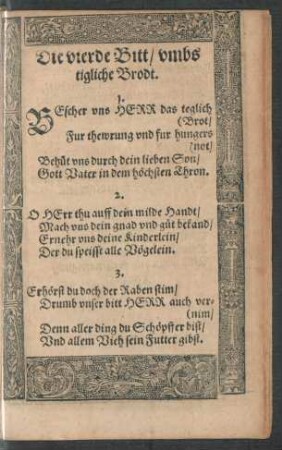 Die vierde Bitt / vmbs
tigliche Brodt.
1.
BEscher vns HERR das teglich
(Brot /
Fur thewrung vnd fur hungers
(not /
Behüt vns durch dein lieben Son /
Gott Vater in dem höchsten Thron.
2.
O HErr thu auff dein milde Handt /
Mach vns dein gnad vnd güt bekand /
Ernehr vns deine Kinderlein /
Der du speisst alle Vögelein.
3.
Erhörst du doch der Raben stim /
Drumb vnser bitt HERR auch ver-
(nim /
Denn aller ding du Schöpffer bist /
Vnd allem Vieh sein Futter gibst.